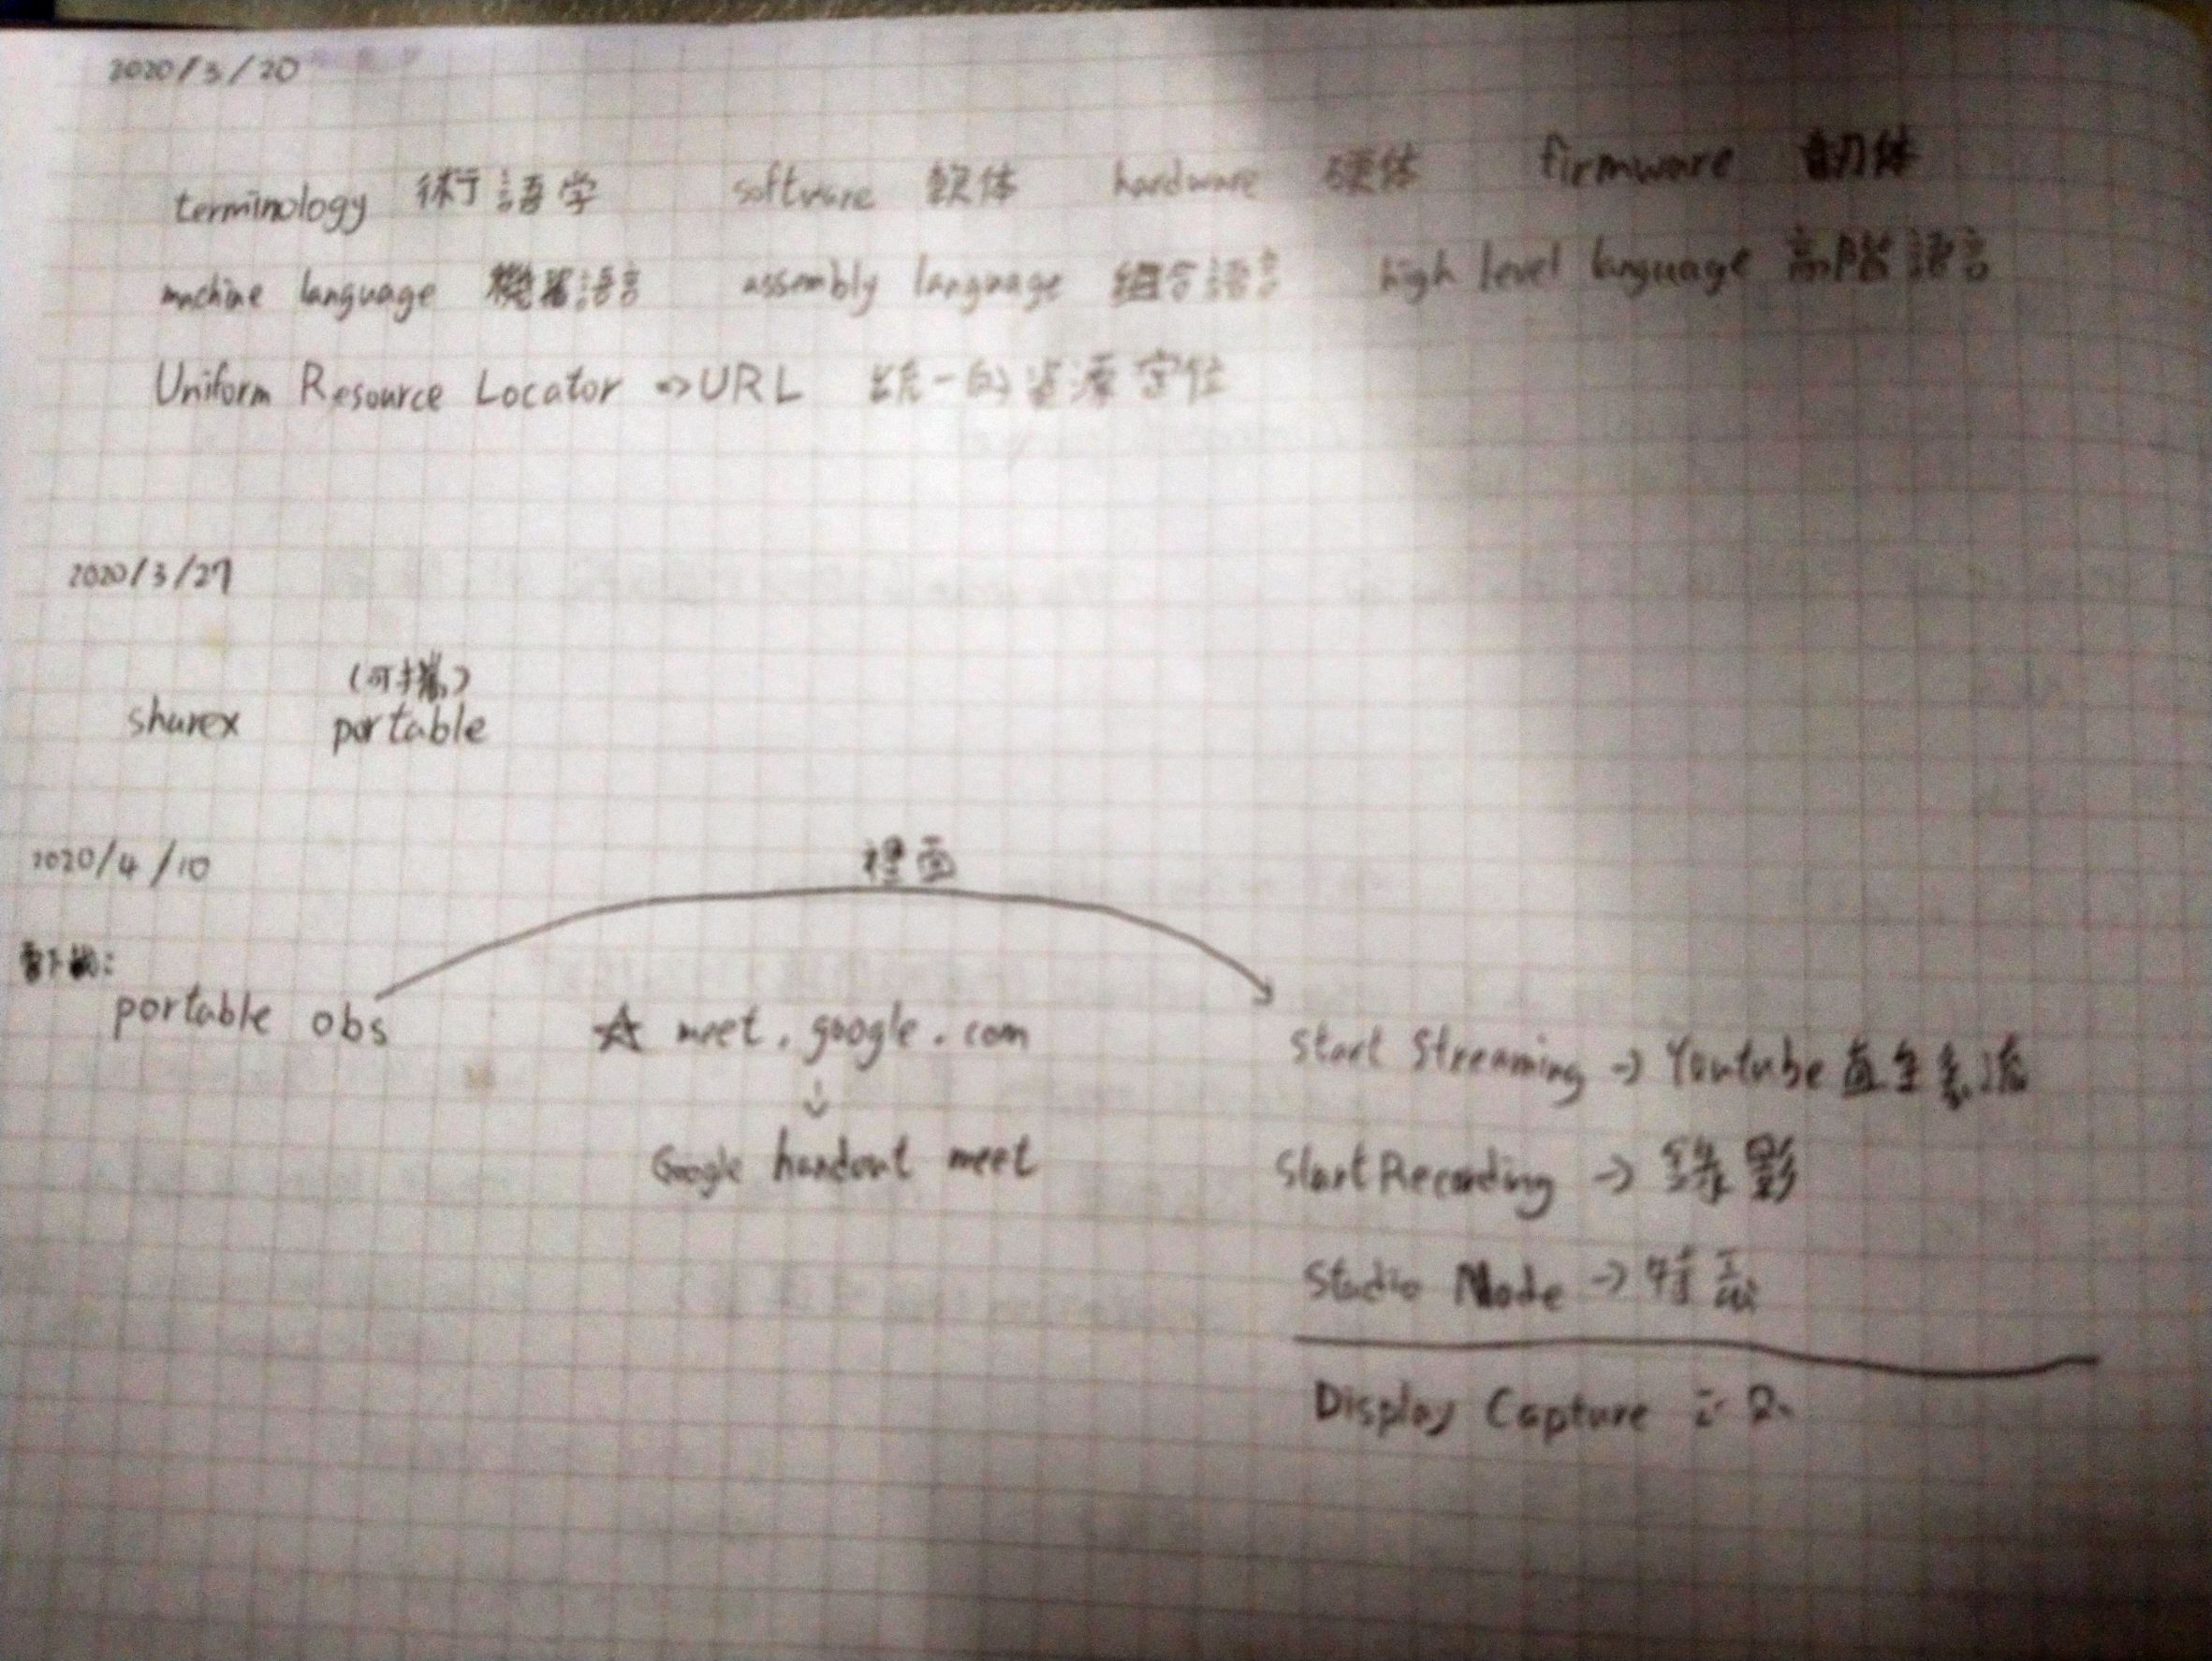 2020/3/20
terminology 術語学 software 軟体 hardware 硬体 firmware 韌体
machine language 機器語言 assembly language 組合語言 high level language 高階語言
Uniform Resource Locator => URL 統一的資源定位
2020/3/27
(可攜)
sharex portable
2020/4/10
裡面
portable obs ☆ meet.google.com
↓
Google handout meet
Start Streaming → Youtube 直
Start Recording → 錄影
Studio Mode → 特
Display Capture